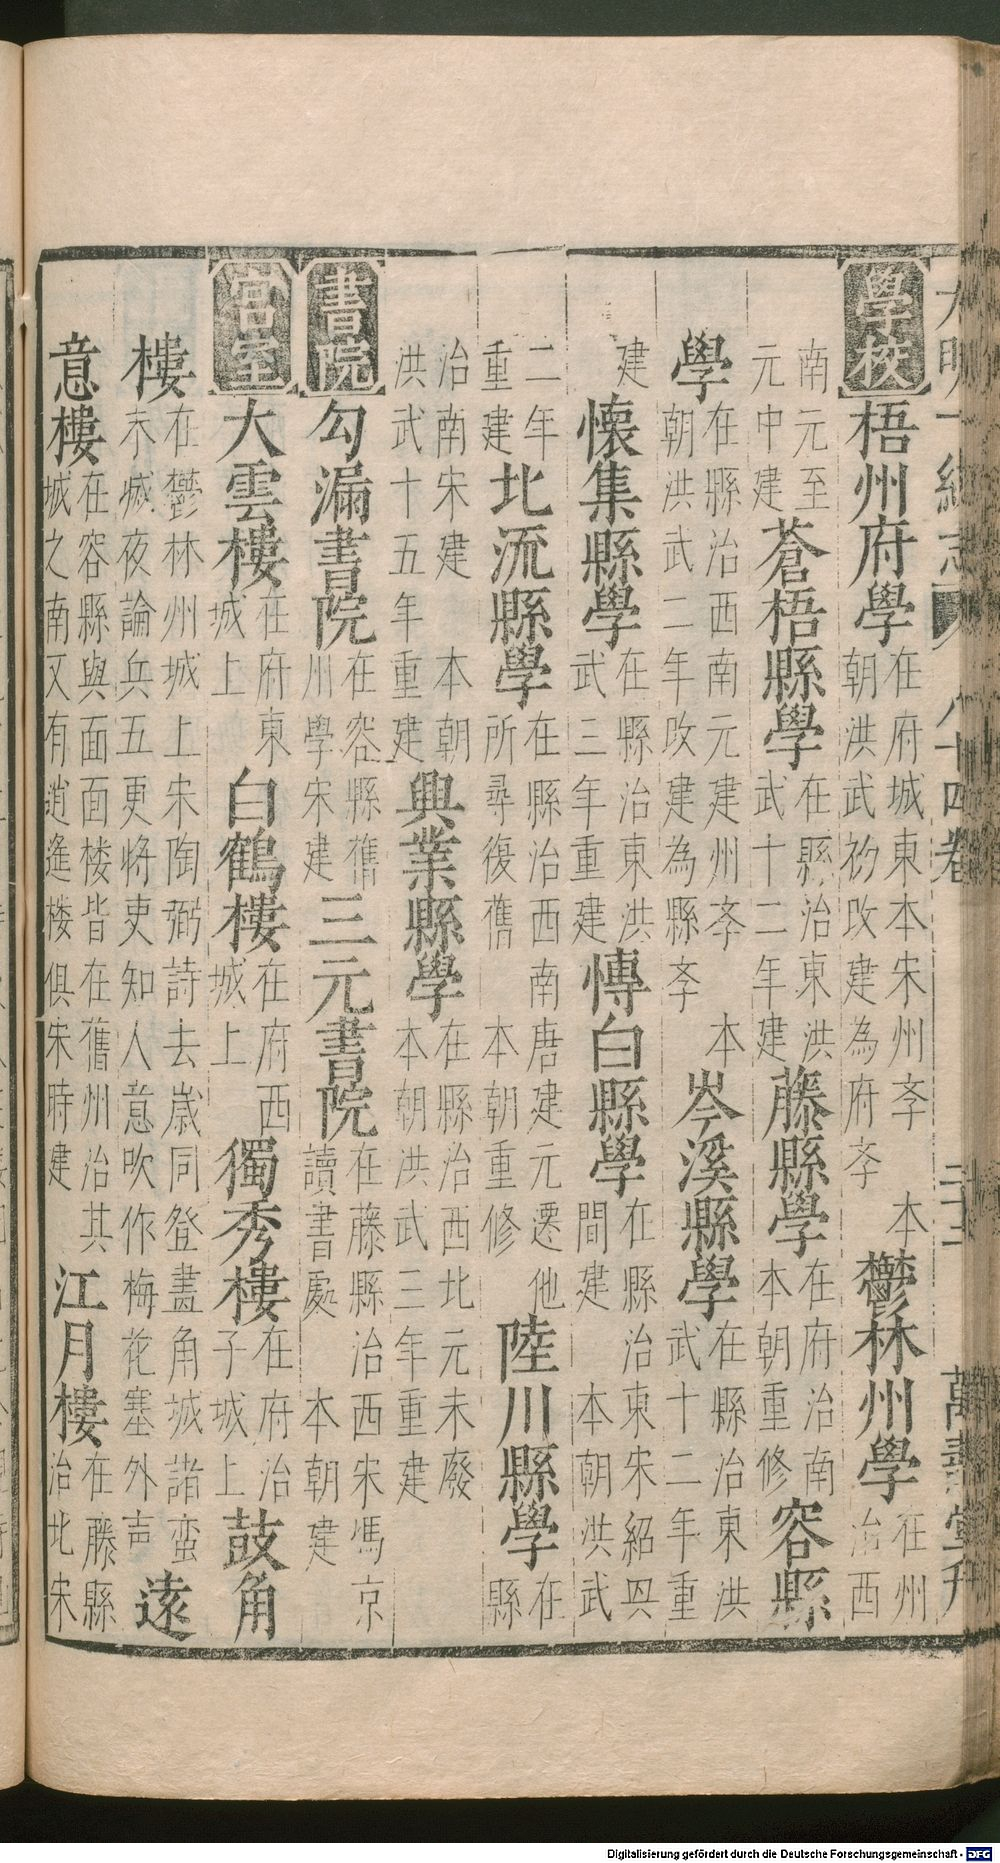 大明一統志 八十四卷 二十二 萬壽堂刋
學校 梧州府學 在府城東本宋州斈 本朝洪武初改建為府斈 鬱林州學 在州治西
南元至元中建 蒼梧縣學 在縣治東洪武十二年建 藤縣學 在府治南本朝重修 容縣
學 在縣治西南元建州斈 本朝洪武二年改建為縣斈 岑溪縣學 在縣治東洪武十二年重
建 懷集縣學 在縣治東洪武三年重建 愽白縣學 在縣治東宋紹興間建 本朝洪武
二年重建 北流縣學 在縣治西南唐建元遷他所尋復舊 本朝重修 陸川縣學 在縣
治南宋建 本朝洪武十五年重建 興業縣學 在縣治西北元末廢本朝洪武三年重建
書院 勾漏書院 在容縣舊川學宋建 三元書院 在藤縣治西宋馮京讀書處 本朝建
宮室 大雲樓 在府東城上 白鶴樓 在府西城上 獨秀樓 在府治子城上 鼓角
樓 在鬱林州城上宋陶弼詩去歲同登畫角城諸蛮未㓕夜論兵五更將吏知人意吹作梅花塞外声 遠
意樓 在容縣與面面楼皆在舊州治其城之南又有逍遙楼俱宋時建 江月樓 在藤縣治北宋
Digitalisierung gefördert durch die Deutsche Forschungsgemeinschaft - DFG